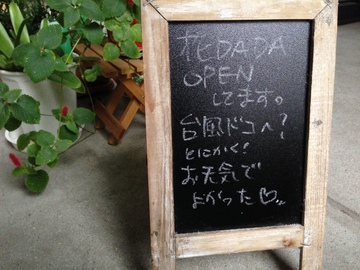 花DADA
OPEN
してます。
台風ドコへ?
とにかく!
お天気で
よかった♡〟